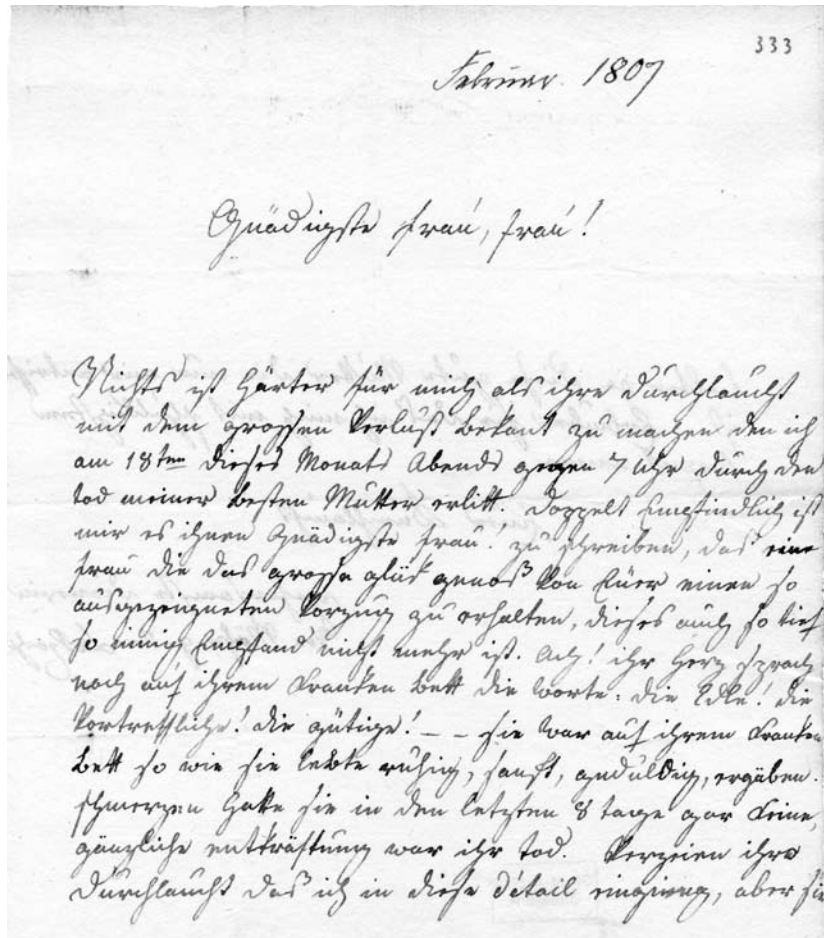 333
Februar. 1807
Gnädigste Frau, Frau!
Nichts ist härter für mich als ihre Durchlaucht
mit dem grossen Verlust bekant zu machen den ich
am 18ten dieses Monats Abends gegen 7 Uhr durch den
tod meiner besten Mutter erlitt. Doppelt Empfindlich ist
mir es ihnen Gnädigste Frau! zu schreiben, das eine
Frau die das grosse glük genoß von Euer einen so
ausgezeigneten Vorzug zu erhalten, dieses auch so tief
so innig Empfand nicht mehr ist. Ach! ihr Herz sprach
noch auf ihrem Kranken bett die worte: die Edle! die
Vortreffliche! die gütige! _ _ sie war auf ihrem Kranken
bett so wie sie lebte ruhig, sanft, geduldig, ergäben.
schmerzen hatte sie in den letzten 8 tage gar keine,
gänzliche entkräftung war ihr tod. Verzeien ihro
Durchlaucht das ich in diese détail einging, aber sie